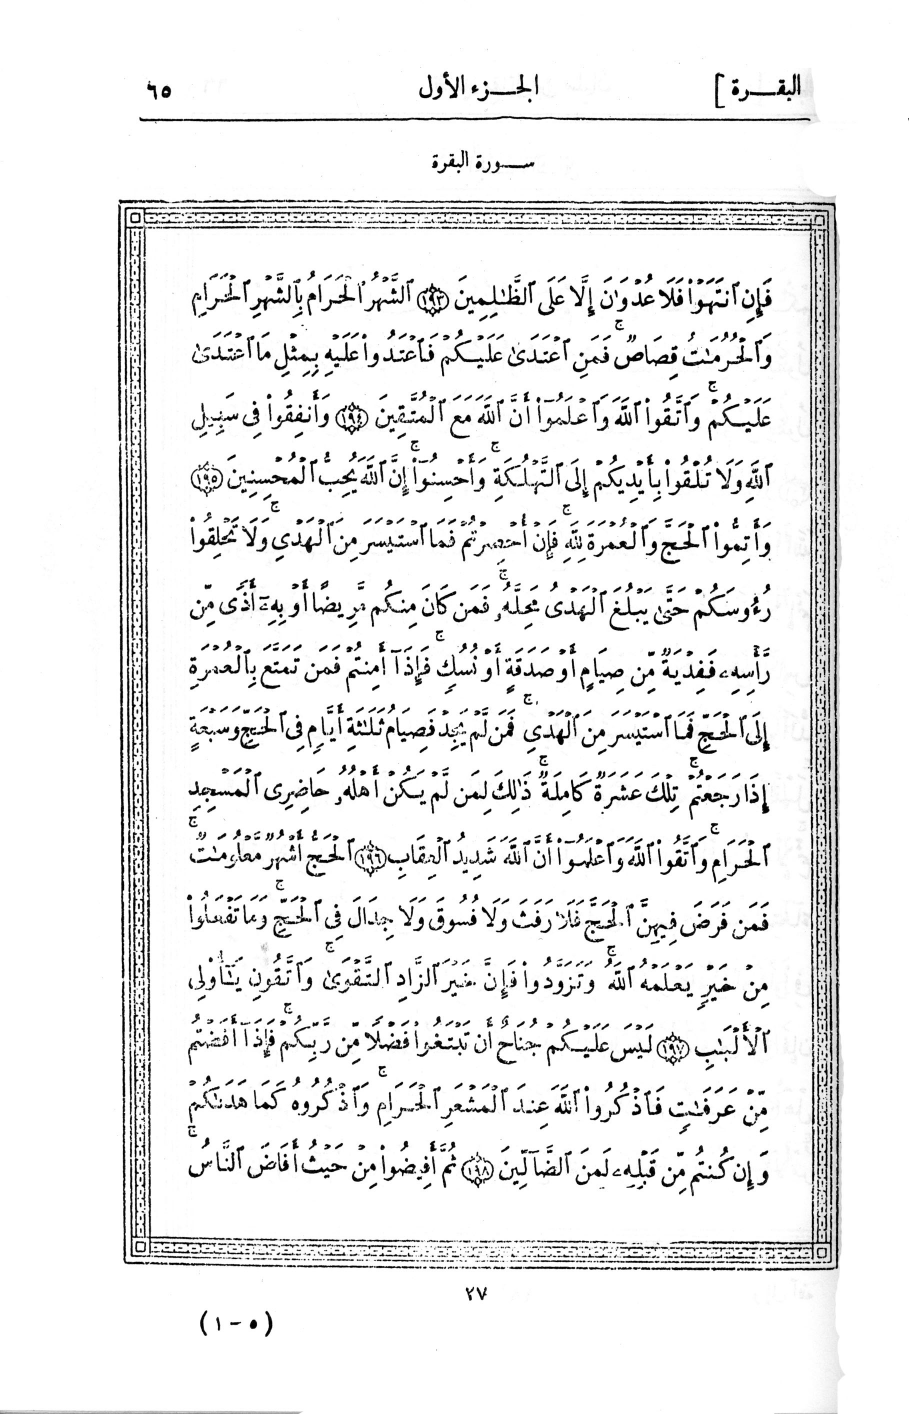 البقرة]
الجزء الأول
٦٥
سورة البقرة
فَإِنِ ٱنتَهَوْا۟ فَلَا عُدْوَٰنَ إِلَّا عَلَى ٱلظَّٰلِمِينَ ﴿١٩٣﴾ ٱلشَّهْرُ ٱلْحَرَامُ بِٱلشَّهْرِ ٱلْحَرَامِ
وَٱلْحُرُمَٰتُ قِصَاصٌ ۚ فَمَنِ ٱعْتَدَىٰ عَلَيْكُمْ فَٱعْتَدُوا۟ عَلَيْهِ بِمِثْلِ مَا ٱعْتَدَىٰ
عَلَيْكُمْ ۚ وَٱتَّقُوا۟ ٱللَّهَ وَٱعْلَمُوٓا۟ أَنَّ ٱللَّهَ مَعَ ٱلْمُتَّقِينَ ﴿١٩٤﴾ وَأَنفِقُوا۟ فِى سَبِيلِ
ٱللَّهِ وَلَا تُلْقُوا۟ بِأَيْدِيكُمْ إِلَى ٱلتَّهْلُكَةِ ۚ وَأَحْسِنُوٓا۟ ۚ إِنَّ ٱللَّهَ يُحِبُّ ٱلْمُحْسِنِينَ ﴿١٩٥﴾
وَأَتِمُّوا۟ ٱلْحَجَّ وَٱلْعُمْرَةَ لِلَّهِ ۚ فَإِنْ أُحْصِرْتُمْ فَمَا ٱسْتَيْسَرَ مِنَ ٱلْهَدْىِ ۚ وَلَا تَحْلِقُوا۟
رُءُوسَكُمْ حَتَّىٰ يَبْلُغَ ٱلْهَدْىُ مَحِلَّهُۥ ۚ فَمَن كَانَ مِنكُم مَّرِيضًا أَوْ بِهِۦٓ أَذًى مِّن
رَّأْسِهِۦ فَفِدْيَةٌ مِّن صِيَامٍ أَوْ صَدَقَةٍ أَوْ نُسُكٍ ۚ فَإِذَآ أَمِنتُمْ فَمَن تَمَتَّعَ بِٱلْعُمْرَةِ
إِلَى ٱلْحَجِّ فَمَا ٱسْتَيْسَرَ مِنَ ٱلْهَدْىِ ۚ فَمَن لَّمْ يَجِدْ فَصِيَامُ ثَلَٰثَةِ أَيَّامٍ فِى ٱلْحَجِّ وَسَبْعَةٍ
إِذَا رَجَعْتُمْ ۗ تِلْكَ عَشَرَةٌ كَامِلَةٌ ۗ ذَٰلِكَ لِمَن لَّمْ يَكُنْ أَهْلُهُۥ حَاضِرِى ٱلْمَسْجِدِ
ٱلْحَرَامِ ۚ وَٱتَّقُوا۟ ٱللَّهَ وَٱعْلَمُوٓا۟ أَنَّ ٱللَّهَ شَدِيدُ ٱلْعِقَابِ ﴿١٩٦﴾ ٱلْحَجُّ أَشْهُرٌ مَّعْلُومَٰتٌ ۚ
فَمَن فَرَضَ فِيهِنَّ ٱلْحَجَّ فَلَا رَفَثَ وَلَا فُسُوقَ وَلَا جِدَالَ فِى ٱلْحَجِّ ۗ وَمَا تَفْعَلُوا۟
مِنْ خَيْرٍ يَعْلَمْهُ ٱللَّهُ ۗ وَتَزَوَّدُوا۟ فَإِنَّ خَيْرَ ٱلزَّادِ ٱلتَّقْوَىٰ ۚ وَٱتَّقُونِ يَٰٓأُو۟لِى
ٱلْأَلْبَٰبِ ﴿١٩٧﴾ لَيْسَ عَلَيْكُمْ جُنَاحٌ أَن تَبْتَغُوا۟ فَضْلًا مِّن رَّبِّكُمْ ۚ فَإِذَآ أَفَضْتُم
مِّنْ عَرَفَٰتٍ فَٱذْكُرُوا۟ ٱللَّهَ عِندَ ٱلْمَشْعَرِ ٱلْحَرَامِ ۖ وَٱذْكُرُوهُ كَمَا هَدَىٰكُمْ
وَإِن كُنتُم مِّن قَبْلِهِۦ لَمِنَ ٱلضَّآلِّينَ ﴿١٩٨﴾ ثُمَّ أَفِيضُوا۟ مِنْ حَيْثُ أَفَاضَ ٱلنَّاسُ ۚ
٢٧
(٥ - ١)